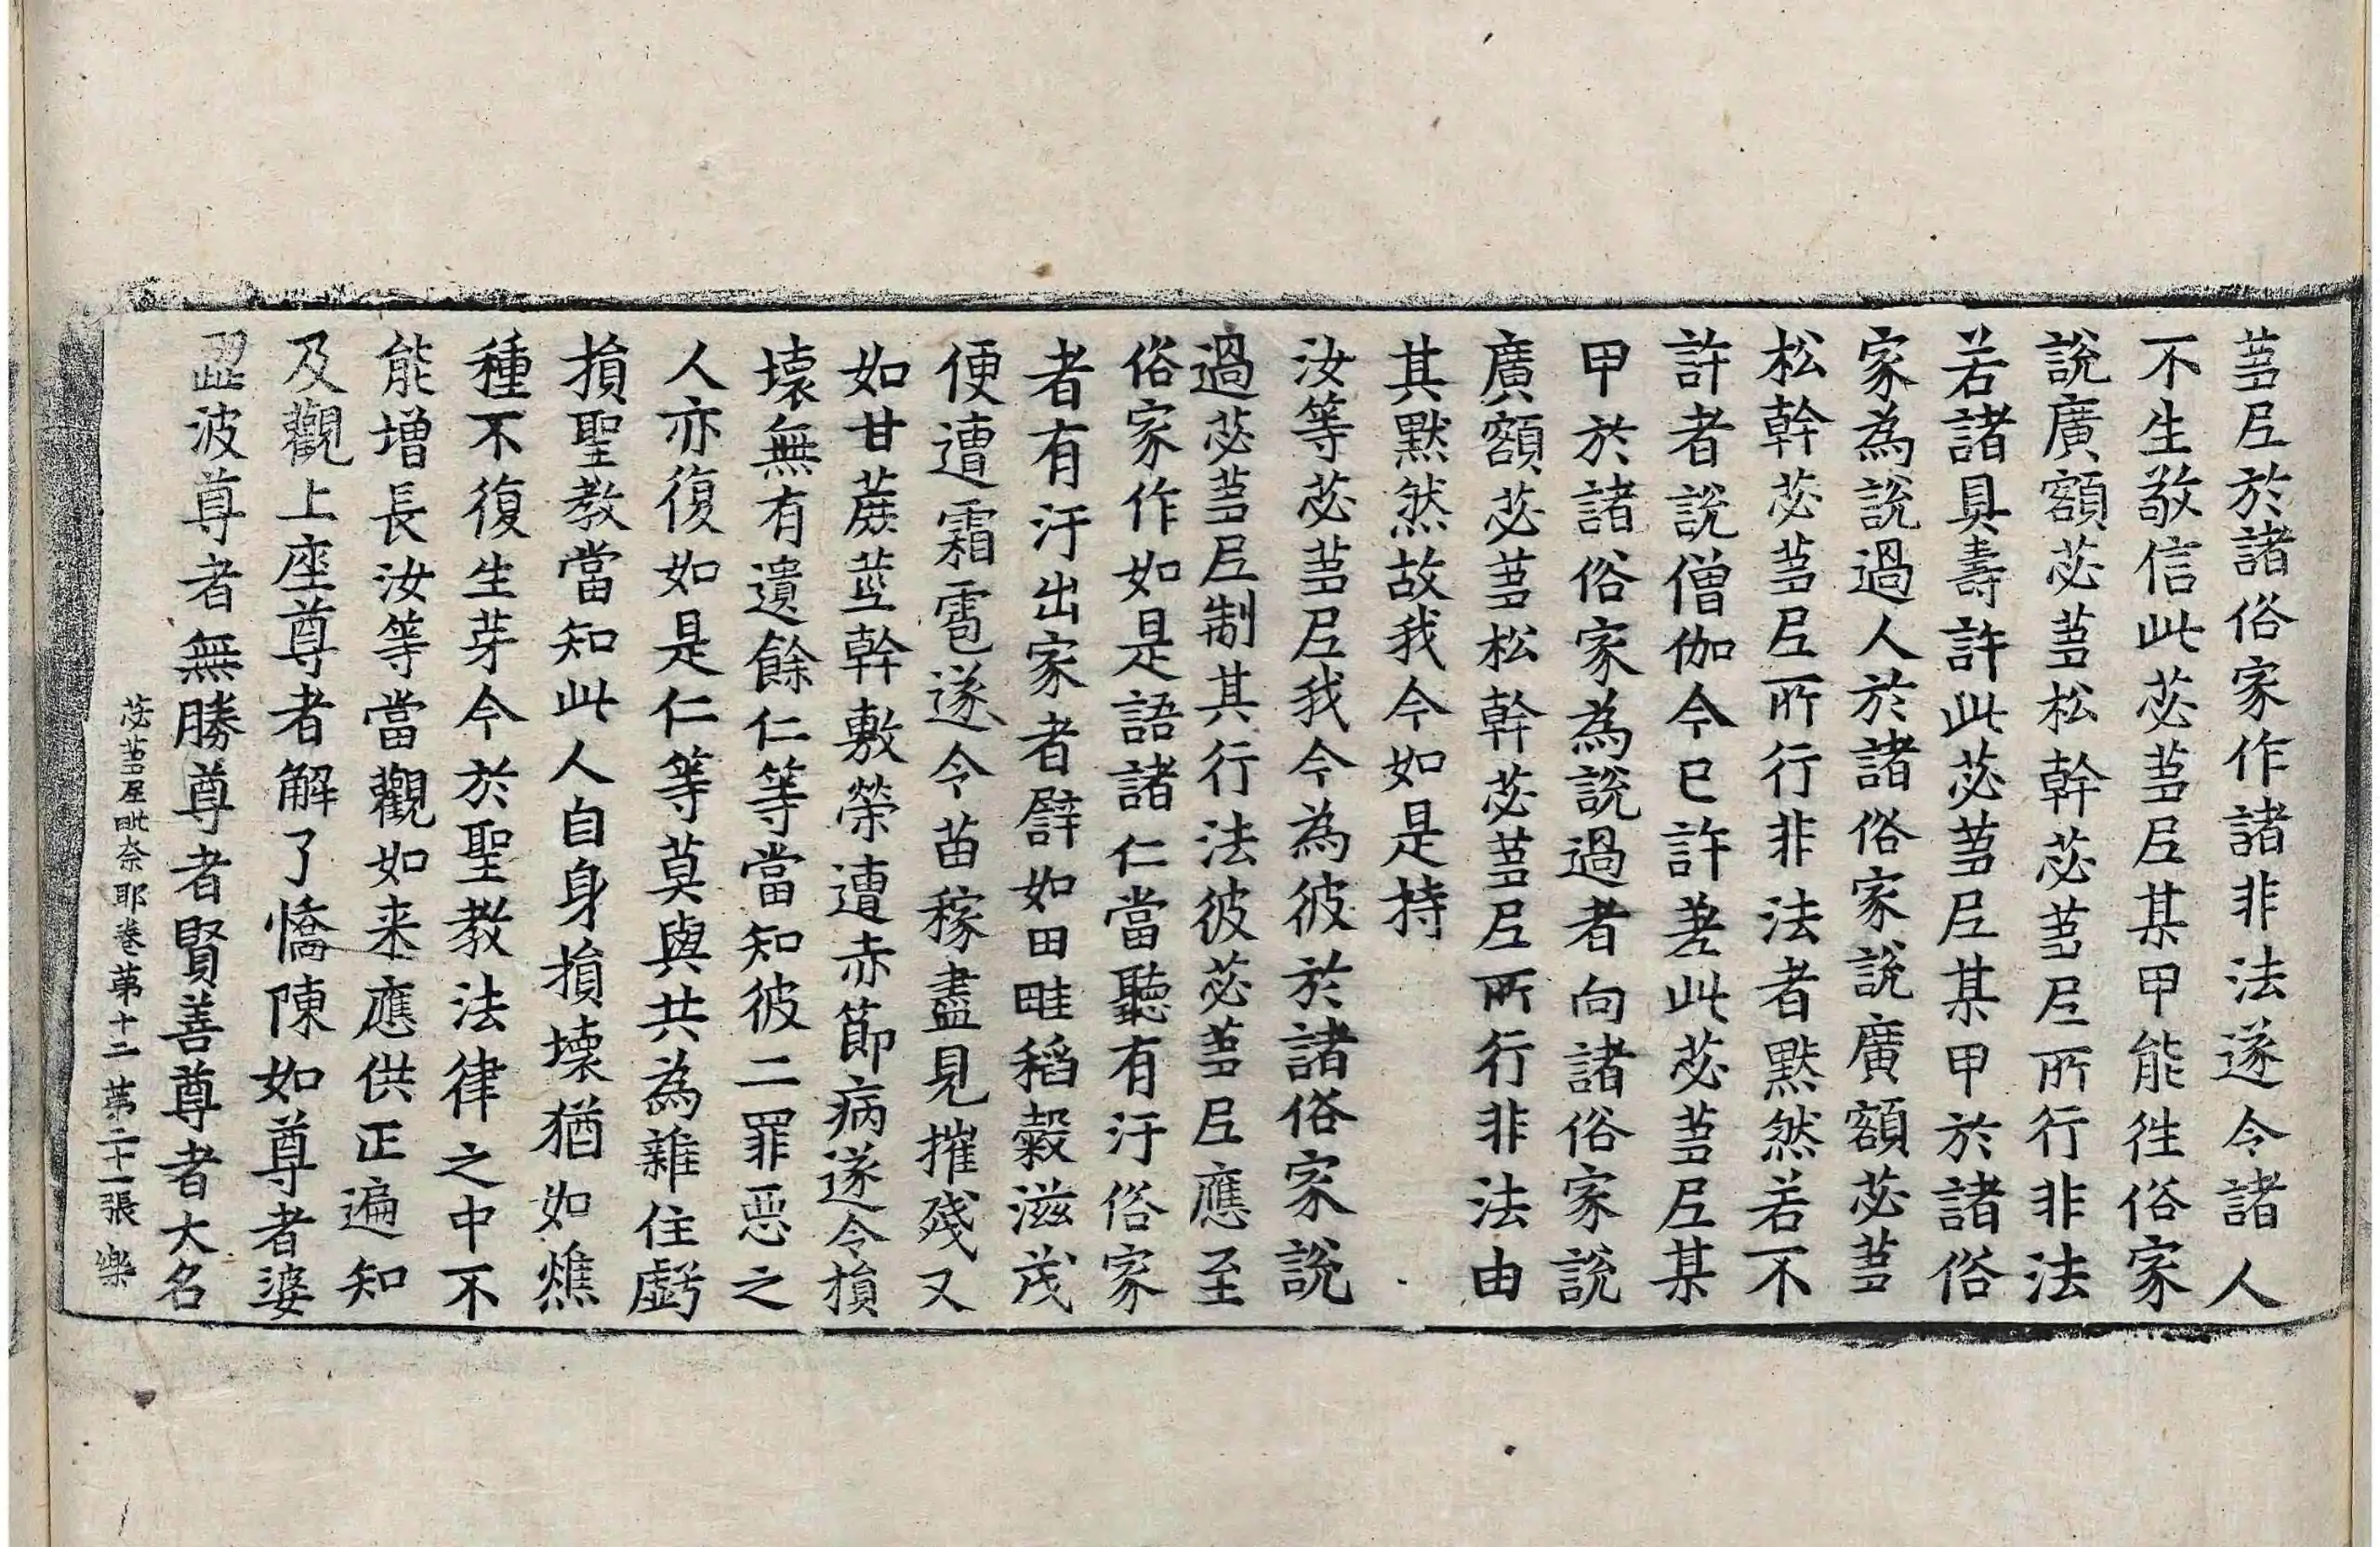 蒭尼於諸俗家作諸非法遂令諸人
不生敬信此苾蒭尼某甲能徃俗家
說廣額苾蒭松幹苾蒭尼所行非法
若諸具壽許此苾蒭尼某甲於諸俗
家為說過人於諸俗家說廣額苾蒭
松幹苾蒭尼所行非法者默然若不
許者說僧伽今已許差此苾蒭尼某
甲於諸俗家為說過者向諸俗家說
廣額苾蒭松幹苾蒭尼所行非法由
其默然故我今如是持
汝等苾蒭尼我今為彼於諸俗家說
過苾蒭尼制其行法彼苾蒭尼應至
俗家作如是語諸仁當聽有汙俗家
者有汙出家者譬如田畦稻糓滋茂
便遭霜雹遂令苗稼盡見摧殘又
如甘蔗莖幹敷榮遭赤節病遂令損
壞無有遺餘仁等當知彼二罪惡之
人亦復如是仁等莫與共為雜住虧
損聖教當知此人自身損壞猶如燋
種不復生芽今於聖教法律之中不
能增長汝等當觀如来應供正遍知
及觀上座尊者解了憍陳如尊者婆
澀波尊者無勝尊者賢善尊者大名
苾蒭尼毗奈耶卷第十二 第二十一張 樂